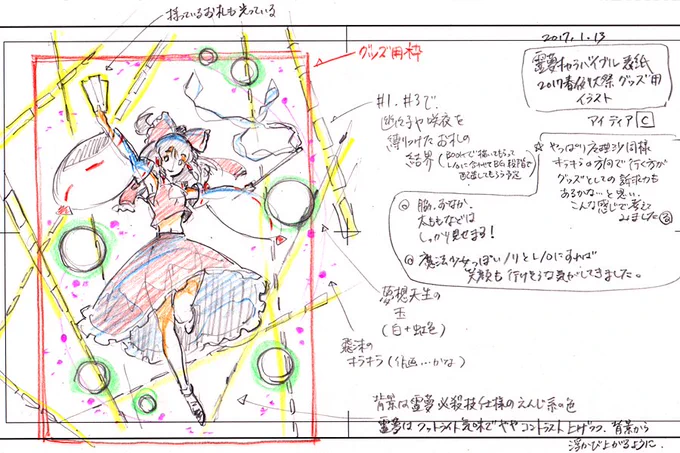 持っているお札も光っている
2017.1.13
グッズ用枠
霊夢キャラバイブル表紙
2017春例大祭グッズ用
イラスト
アイディア C
#1.#3で
幽々子や咲夜を
縛りつけたお札の
結界
☆ やっぱり魔理沙同様
キラキラの方向で行く方が
グッズとしての訴求力も
あるかな…と思い、
こんな感じで考えて
みました
◎ 脇、おなか、
太ももなどは
しっかり見せます!
◎ 魔法少女っぽいノリとL/Oにすれば
笑顔も行けそうな気がしてきました。
夢想天生の
玉
(白+虹色)
飛沫の
キラキラ(作画…かな)
背景は霊夢必殺技仕様のえんじ系の色
霊夢はフットライト気味でややコントラスト上げつつ、背景から
浮かび上がるように